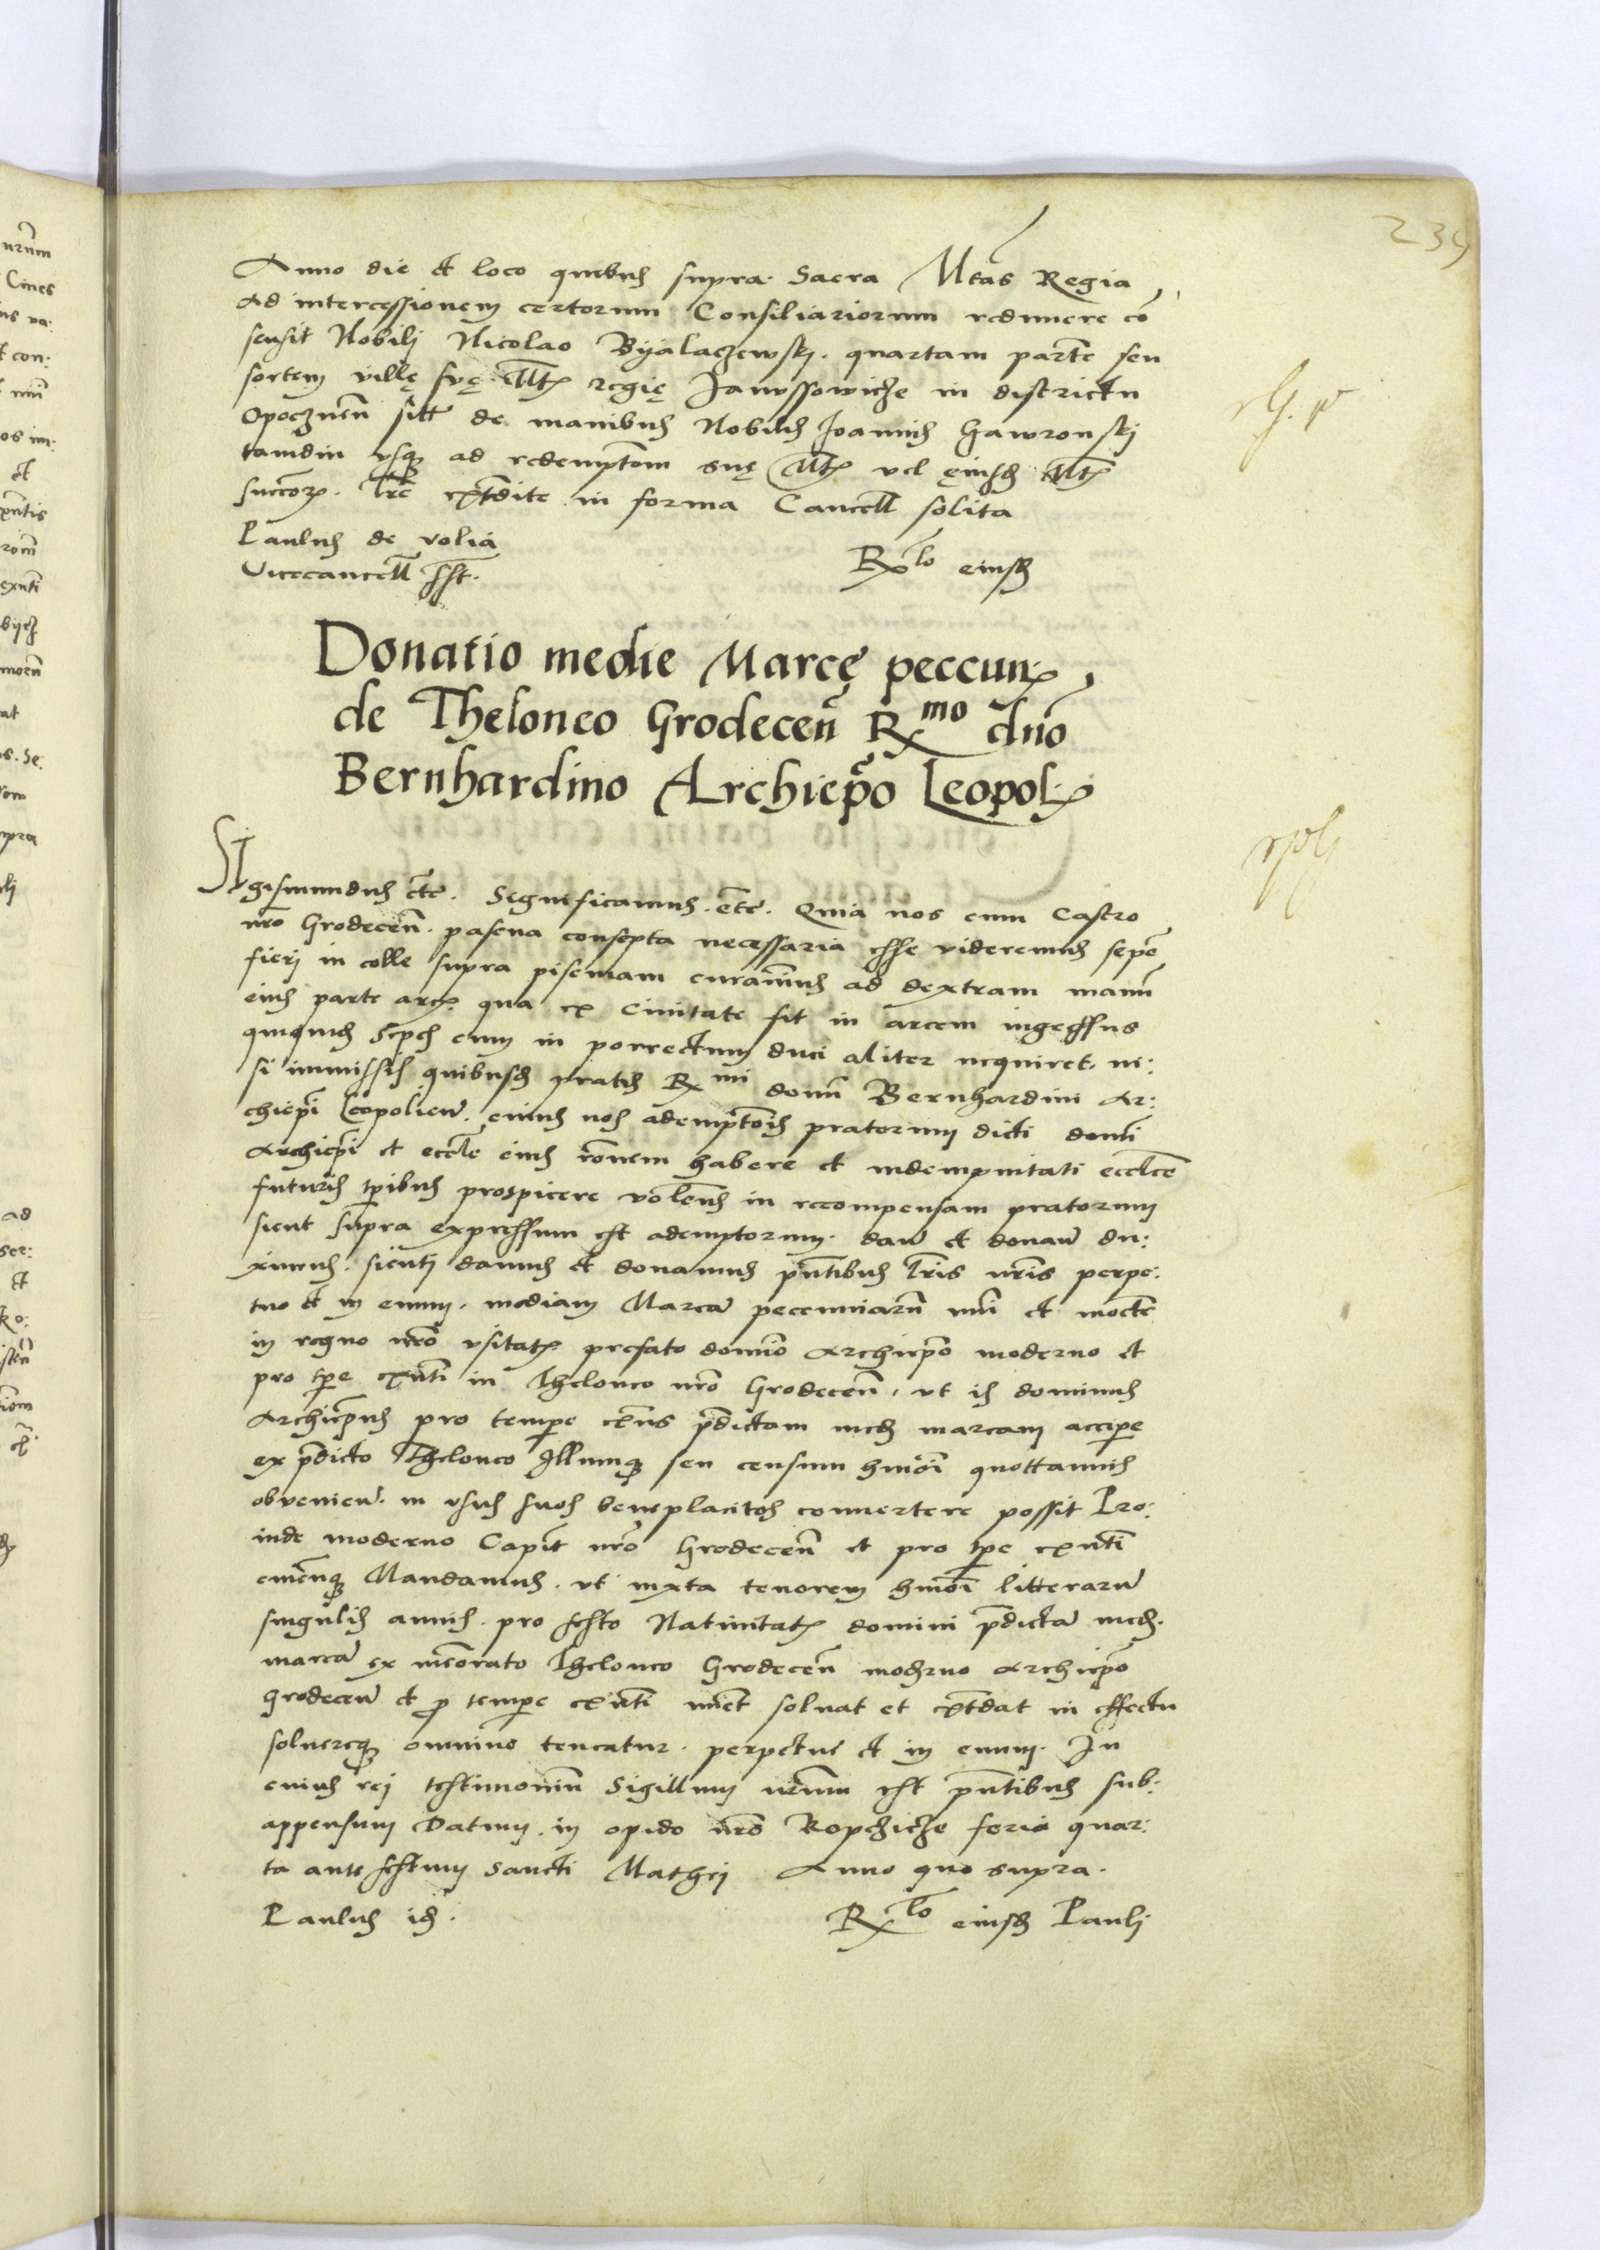 239
Anno die et loco quibus supra. Sacra Mtas Regia
ad intercessionem certorum Consiliariorum redimere co
sensit Nobili Nicolao Byalaczewski. quartam partem seu
sortem ville sue Mtis regie Janussowicze in districtu
Opocznen sitt de manibus Nobilis Joannis Gawronski
tamdiu usque ad redemptom sue Mtis vel eiusdem Mtis
succorum. Lre extradite in forma Cancell solita
Paulus de volia
Vicecancell sst.
Rlo eiusdem
Donatio medie Marce peccun
de Theloneo Grodecen Rmo dno
Bernhardino Archiepo Leopol
Sigismundus etc. Significamus. etc. Quia nos cum Castro
nro Grodecen. pascua consepta necessaria esse videremus sepem
fieri in colle supra piscinam curavimus ad dextram manum
eius parte arcis qua ex Civitate fit in arcem ingressus
quiquidem Sepes cum in porrectum duci aliter nequiret. ni:
si immissis quibusdam pratis Rmi domini Bernhardini Ar:
chiepi Leopolien. cuius nos ademptois pratorum dicti domi
Archiepi et eccle eius ronem habere et indempnitati ecclie
futuris tpibus prospicere volens in recompensam pratorum
sicut supra expressum est ademptorum. daw et donaw du:
ximus. sicuti damus et donamus pntibus lris nris perpe:
tuo et in evum. mediam Marcam peccuniarum nri et monete
in regno nro usitatis prefato domino Archiepo moderno et
pro tpe exnti in Theloneo nro Grodecen. ut is dominus
Archiepus pro tempore exns predictam med marcam accipere
ex predicto Theloneo Illumque seu censum hmoi quottannis
obvenien. in usus suos beneplacitos convertere possit Pro:
inde moderno Capit nro Grodecen et pro tpe exnti
cuicunque Mandamus. ut iuxta tenorem hmoi litterarum
singulis annis. pro festo Nativitatis domini predictam med.
marcam ex memorato Theloneo Grodecen moderno Archiepo
Grodecen et pro tempore exnti numeret solvat et extradat in effectu
solvereque omnino teneatur. perpetue et in evum. In
cuius rei testimonium Sigillum nrum est pntibus sub:
appensum Datum. in opido nro Ropczicze feria quar:
ta ante festum sancti Mathei Anno quo supra.
Paulus idem.
Rlo eiusdem Pauli